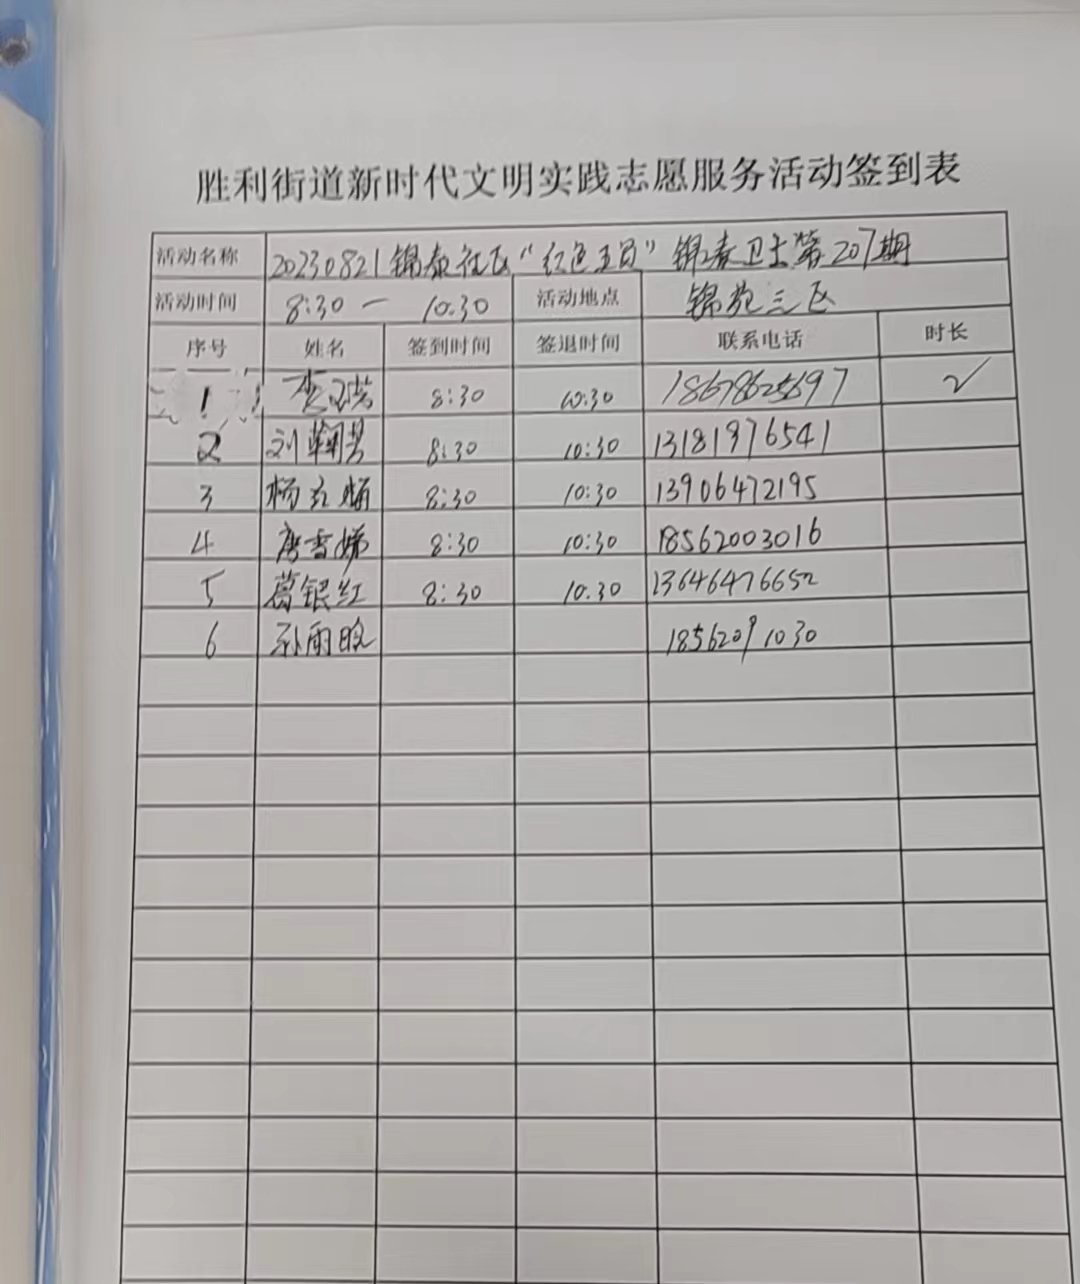 胜利街道新时代文明实践志愿服务活动签到表
活动名称 20230821锦泰社区“红色主题”锦春卫士第207期
活动时间 8:30 — 10:30 活动地点 锦苑三区
序号 姓名 签到时间 签退时间 联系电话 时长
1 李 8:30 10:30 ✓
2 刘翰 8:30 10:30 13181976541
3 杨 8:30 10:30 13906472195
4 唐雪娣 8:30 10:30 18562003016
5 葛银红 8:30 10:30 13646476652
6 孙雨 18562091030